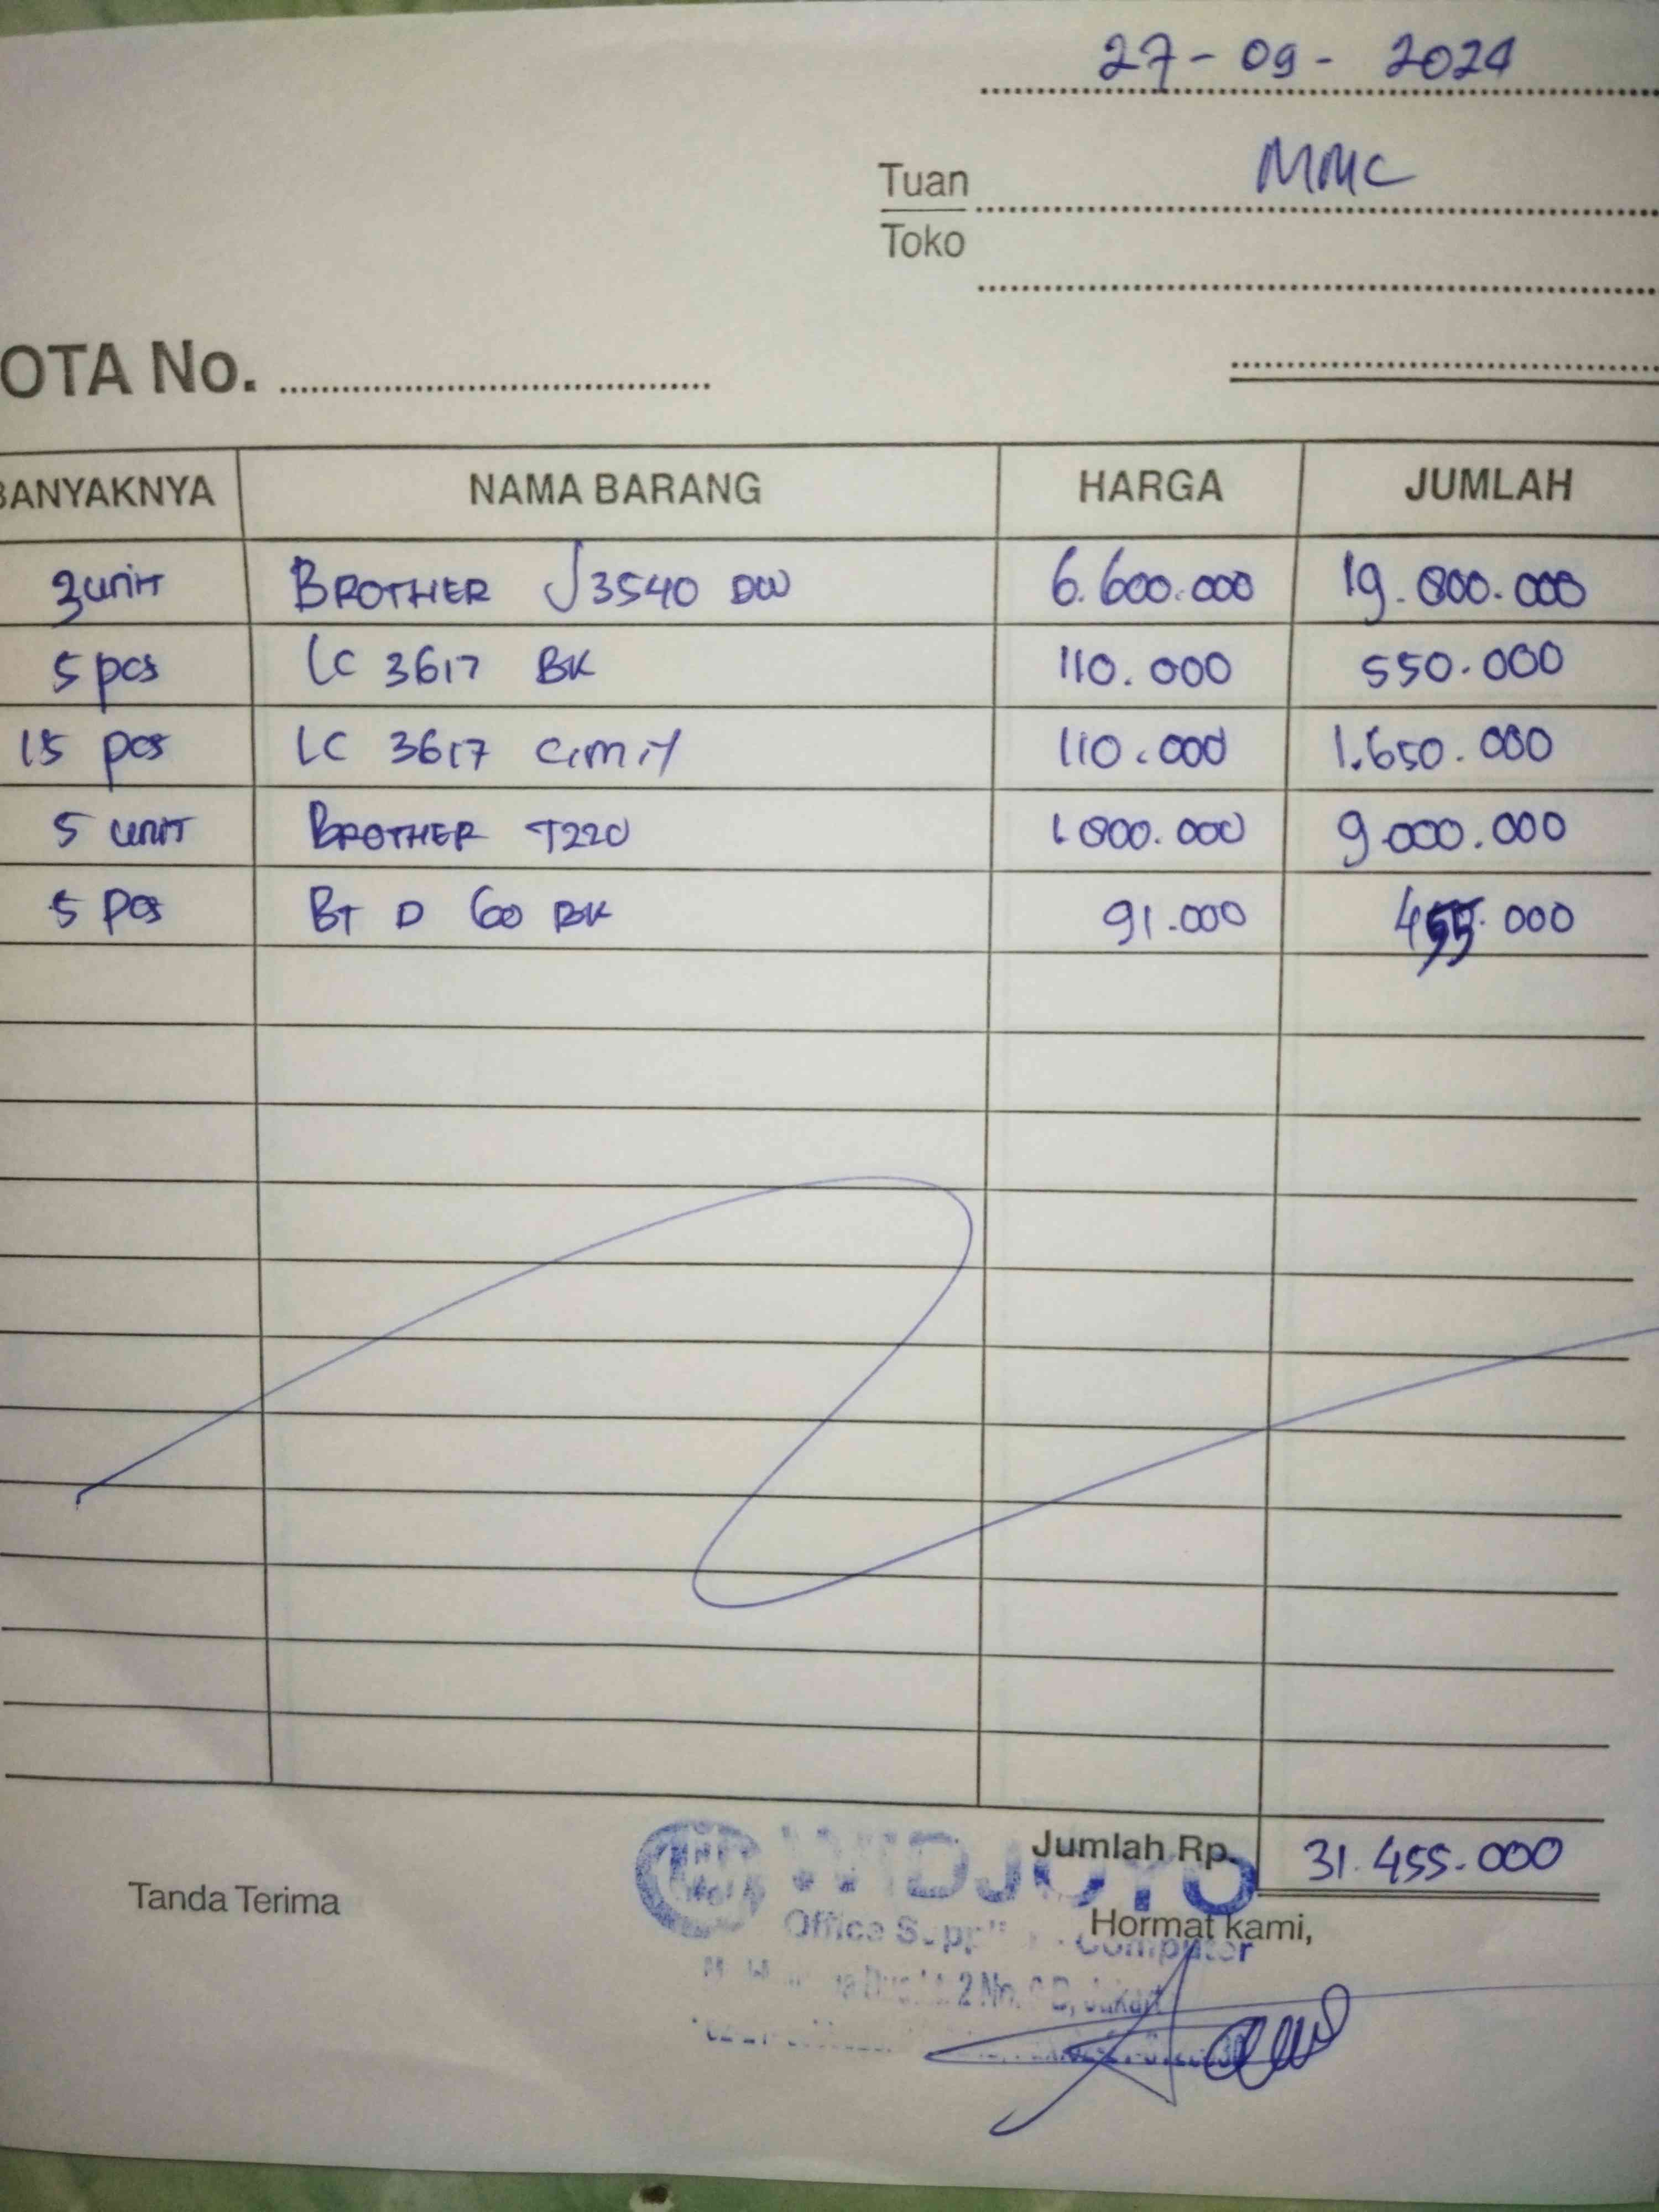 27-09-2024
Tuan MMC
Toko
OTA No.
BANYAKNYA NAMA BARANG HARGA JUMLAH
3 unit BROTHER J3540 DW 6.600.000 19.800.000
5 pcs LC 3617 BK 110.000 550.000
15 pcs LC 3617 C,M,Y 110.000 1.650.000
5 unit BROTHER T220 1.800.000 9.000.000
5 Pcs BT D 60 BK 91.000 455.000
Jumlah Rp. 31.455.000
Tanda Terima
WIDJOYO
Hormat kami,
Office Computer
2 No.